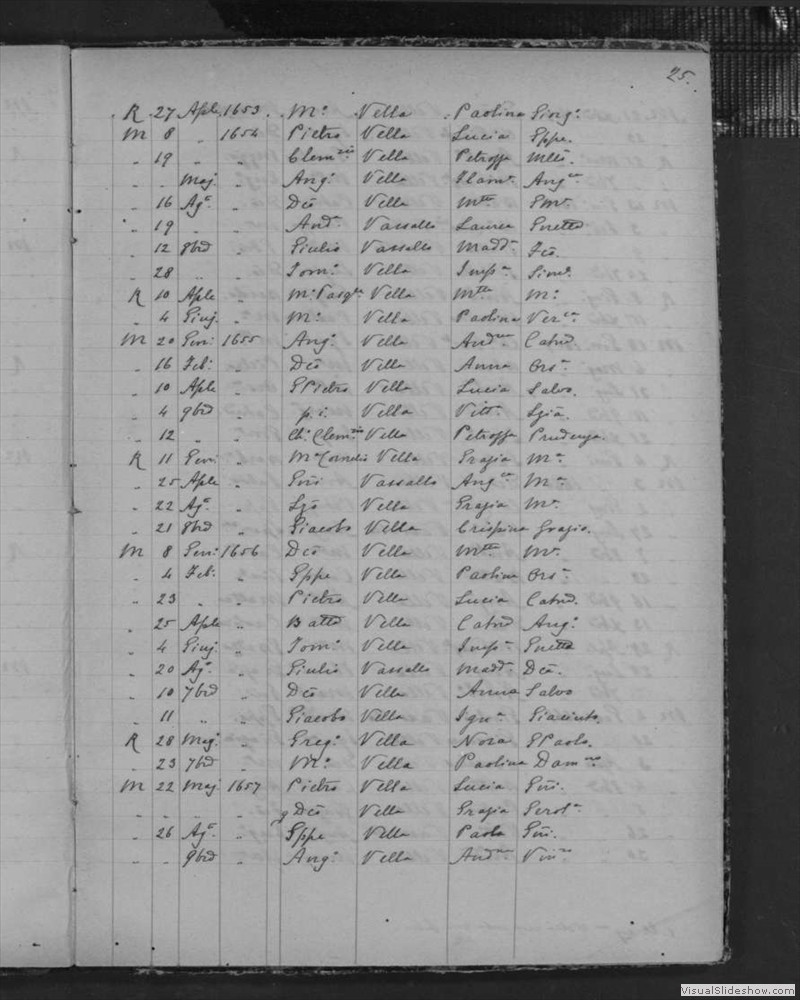 25.
R 27 Aple 1653 Mº Vella Paolina Giugº
M 8 " 1654 Pietro Vella Lucia Gppe.
" 19 " " Clem Vella Petroffa
" " Maj " Angº Vella Angca
" 16 Agº " Dcõ Vella Mtta
" 19 " " Andª Vassallo Laurea
" 12 8brd " Giulio Vassallo Maddª
" 28 " " Tomº Vella Impª Simª
R 10 Aple " Mº Pasqle Vella Mtta Mº
" 4 Giug " Mº Vella Paolina Verca
M 20 Gen: 1655 Angº Vella Andna Catnd
" 16 Feb: " Dcõ Vella Anna Orsª
" 10 Aple " GPietro Vella Lucia Salvo.
" 4 9brd " p.i. Vella Vittª
" 12 " " Ch: Clem Vella Petroffa Prudenza.
R 11 Gen: " Mº Cornelio Vella Grazia Mª
" 25 Aple " Gni Vassallo Angca Mª
" 22 Agº " Vella Grazia Mª
" 21 8brd " Giacobo Vella Crispina Grazia.
M 8 Gen: 1656 Dcõ Vella Mtta Mª
" 4 Feb: " Gppe Vella Paolina Orsª
" 23 " " Pietro Vella Lucia Catnd.
" 25 Aple " Batta Vella Catnd Angº
" 4 Giug " Tomº Vella Impª
" 20 Agº " Giulio Vassallo Maddª Dcã.
" 10 7brd " Dcõ Vella Anna Salvo
" 11 " " Giacobo Vella Ignª Giacinto.
R 28 Magº " Gregº Vella Nora GPaolo.
" 23 7brd " Vella Paolina Damno
M 22 Maj 1657 Pietro Vella Lucia Gni.
" " " " q Dcõ Vella Grazia Gerolª
" 26 Agº " Gppe Vella Paola Gni.
" " 9brd " Angº Vella Andna
VisualSlideshow.com